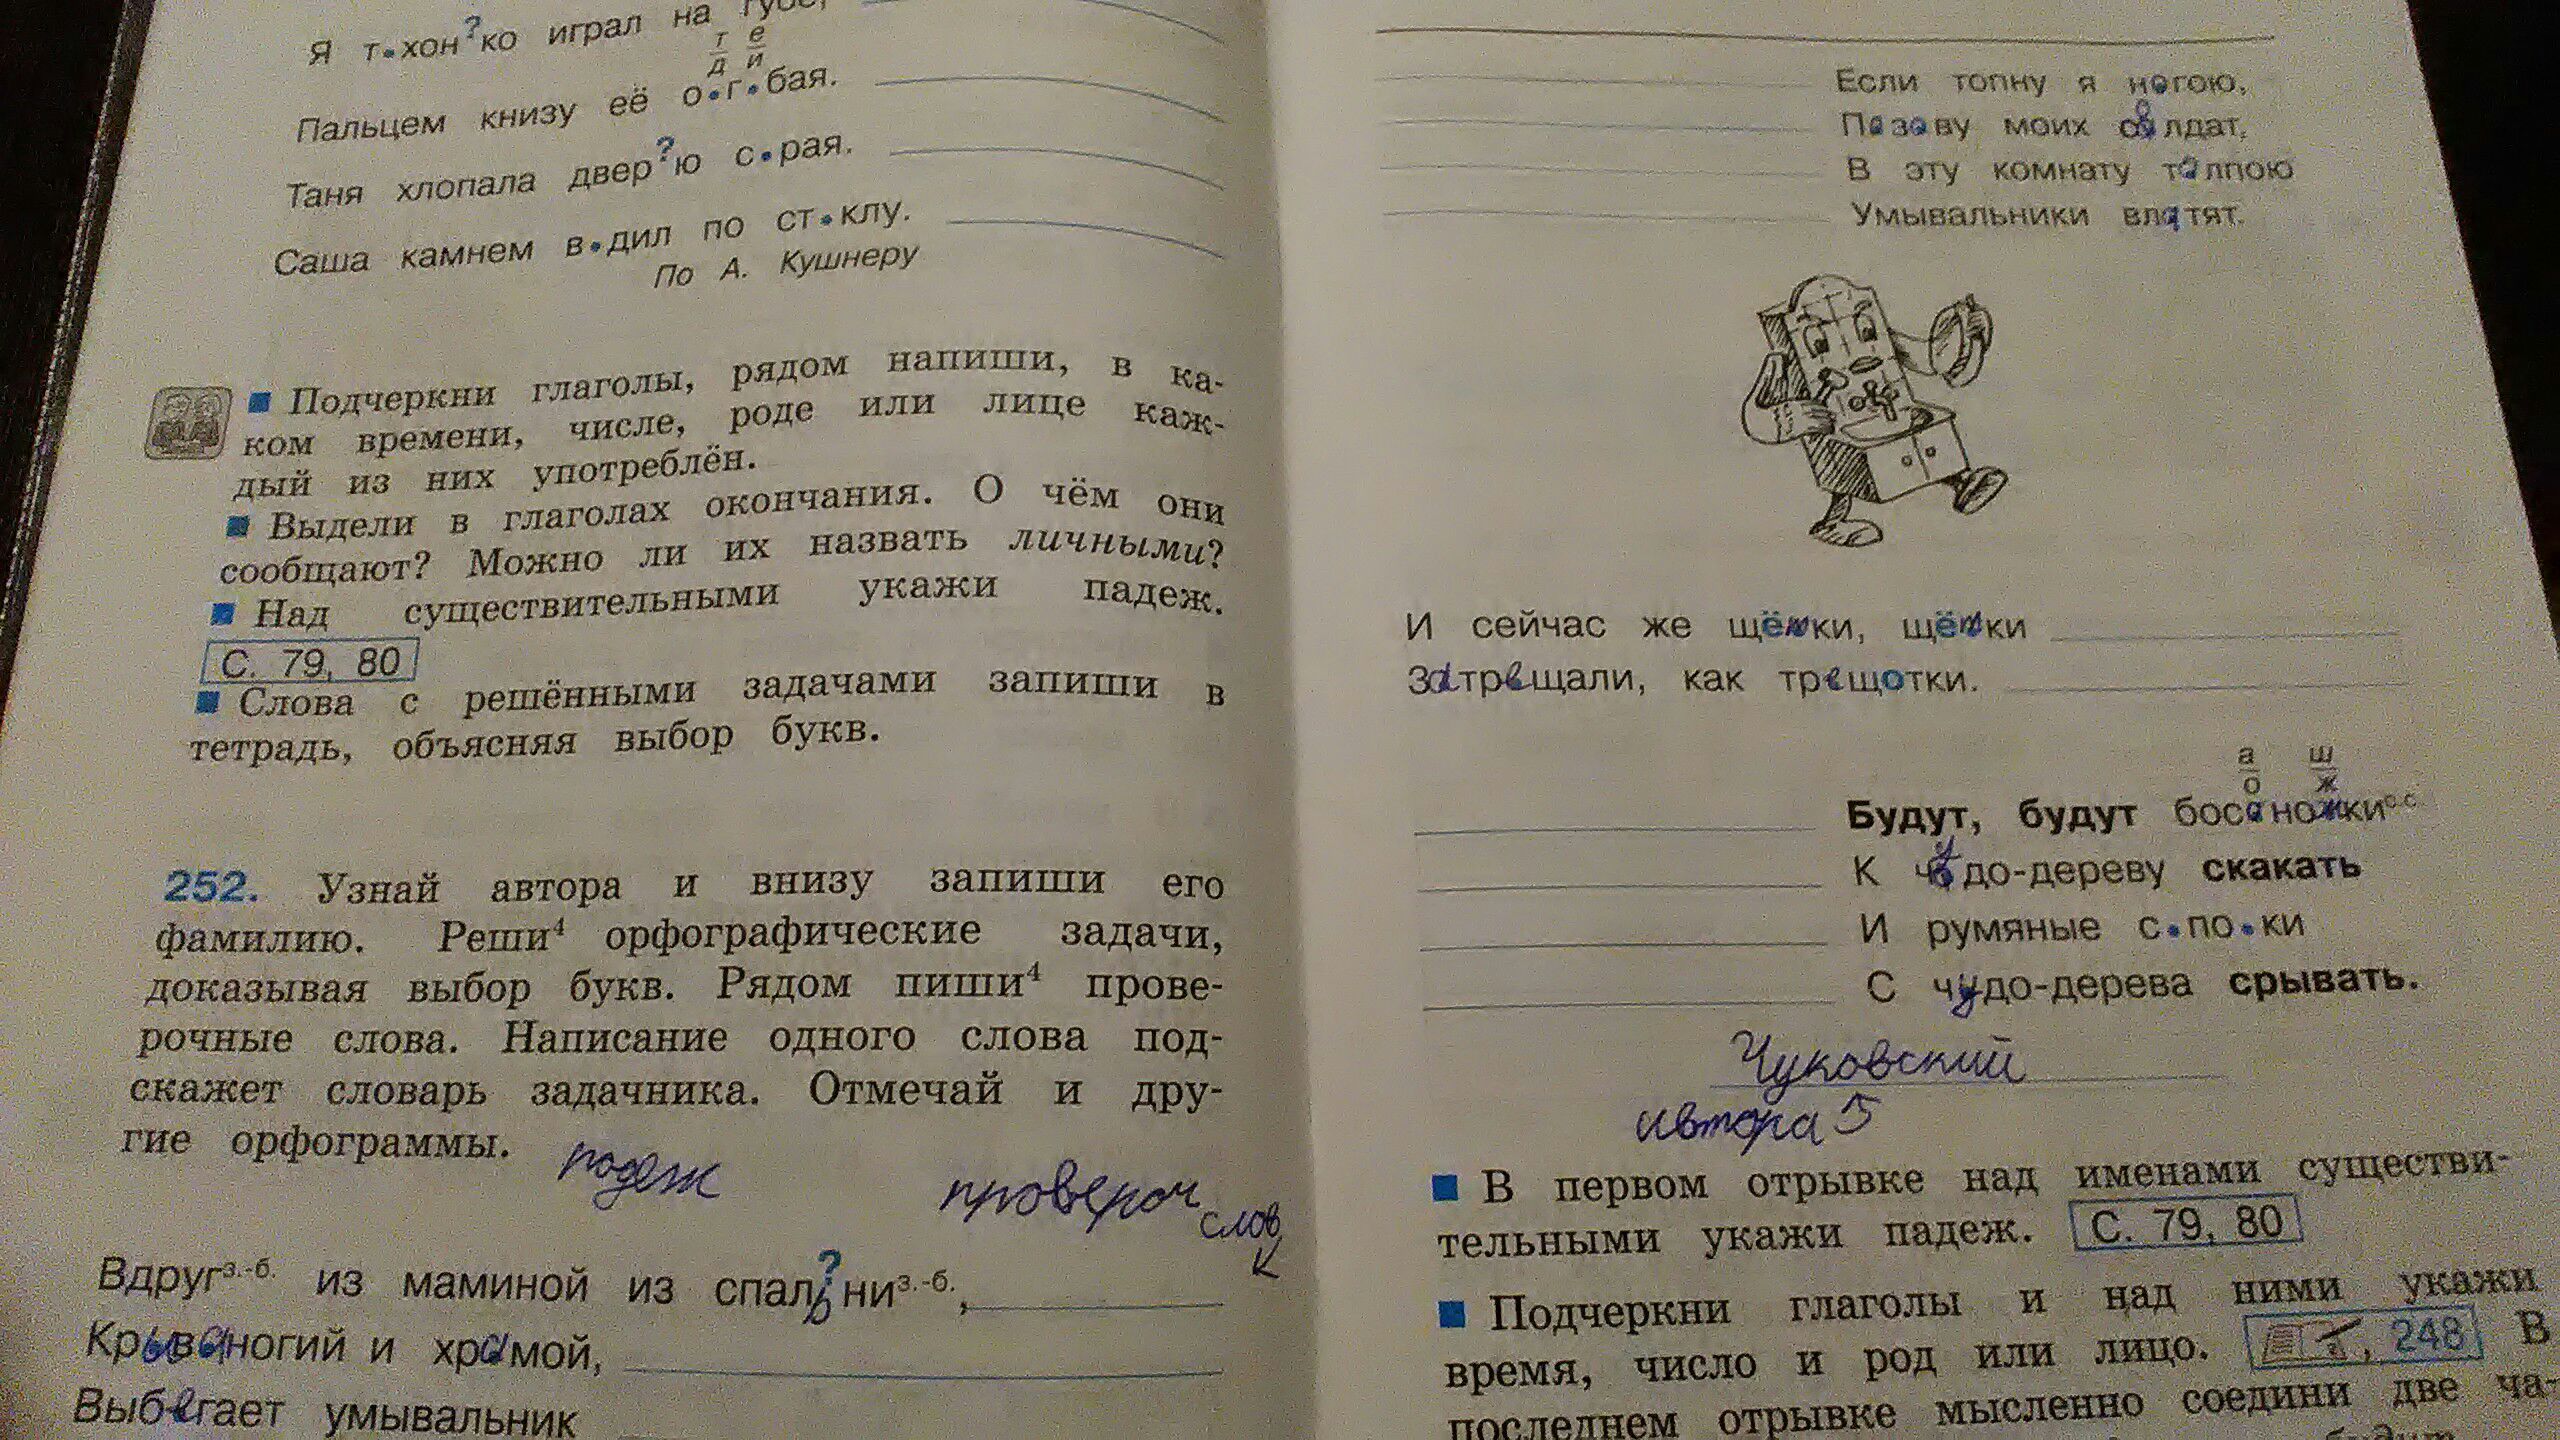 Я т•хон?ко играл на губе,
т е
д и
Пальцем книзу её о•г•бая.
Таня хлопала двер?ю с•рая.
Саша камнем в•дил по ст•клу.
По А. Кушнеру
Подчеркни глаголы, рядом напиши, в ка-
ком времени, числе, роде или лице каж-
дый из них употреблён.
Выдели в глаголах окончания. О чём они
сообщают? Можно ли их назвать личными?
Над существительными укажи падеж.
С. 79, 80
Слова с решёнными задачами запиши в
тетрадь, объясняя выбор букв.
252. Узнай автора и внизу запиши его
фамилию. Реши⁴ орфографические задачи,
доказывая выбор букв. Рядом пиши⁴ прове-
рочные слова. Написание одного слова под-
скажет словарь задачника. Отмечай и дру-
гие орфограммы.
падеж провероч
слов
к
Вдруг з.-б. из маминой из спальни з.-б.,
ногий и храмой,
Выбегает умывальник
Если топну я ногою,
Позову моих солдат,
В эту комнату толпою
Умывальники влетят.
И сейчас же щётки, щётки
Затрещали, как трещотки.
а ш
о ж
Будут, будут босоножки с.с.
К чудо-дереву скакать
И румяные с•по•ки
С чудо-дерева срывать.
Чуковский
автора 5
В первом отрывке над именами существи-
тельными укажи падеж. С. 79, 80
Подчеркни глаголы и над ними укажи
время, число и род или лицо. , 248 В
последнем отрывке мысленно соедини две ча-